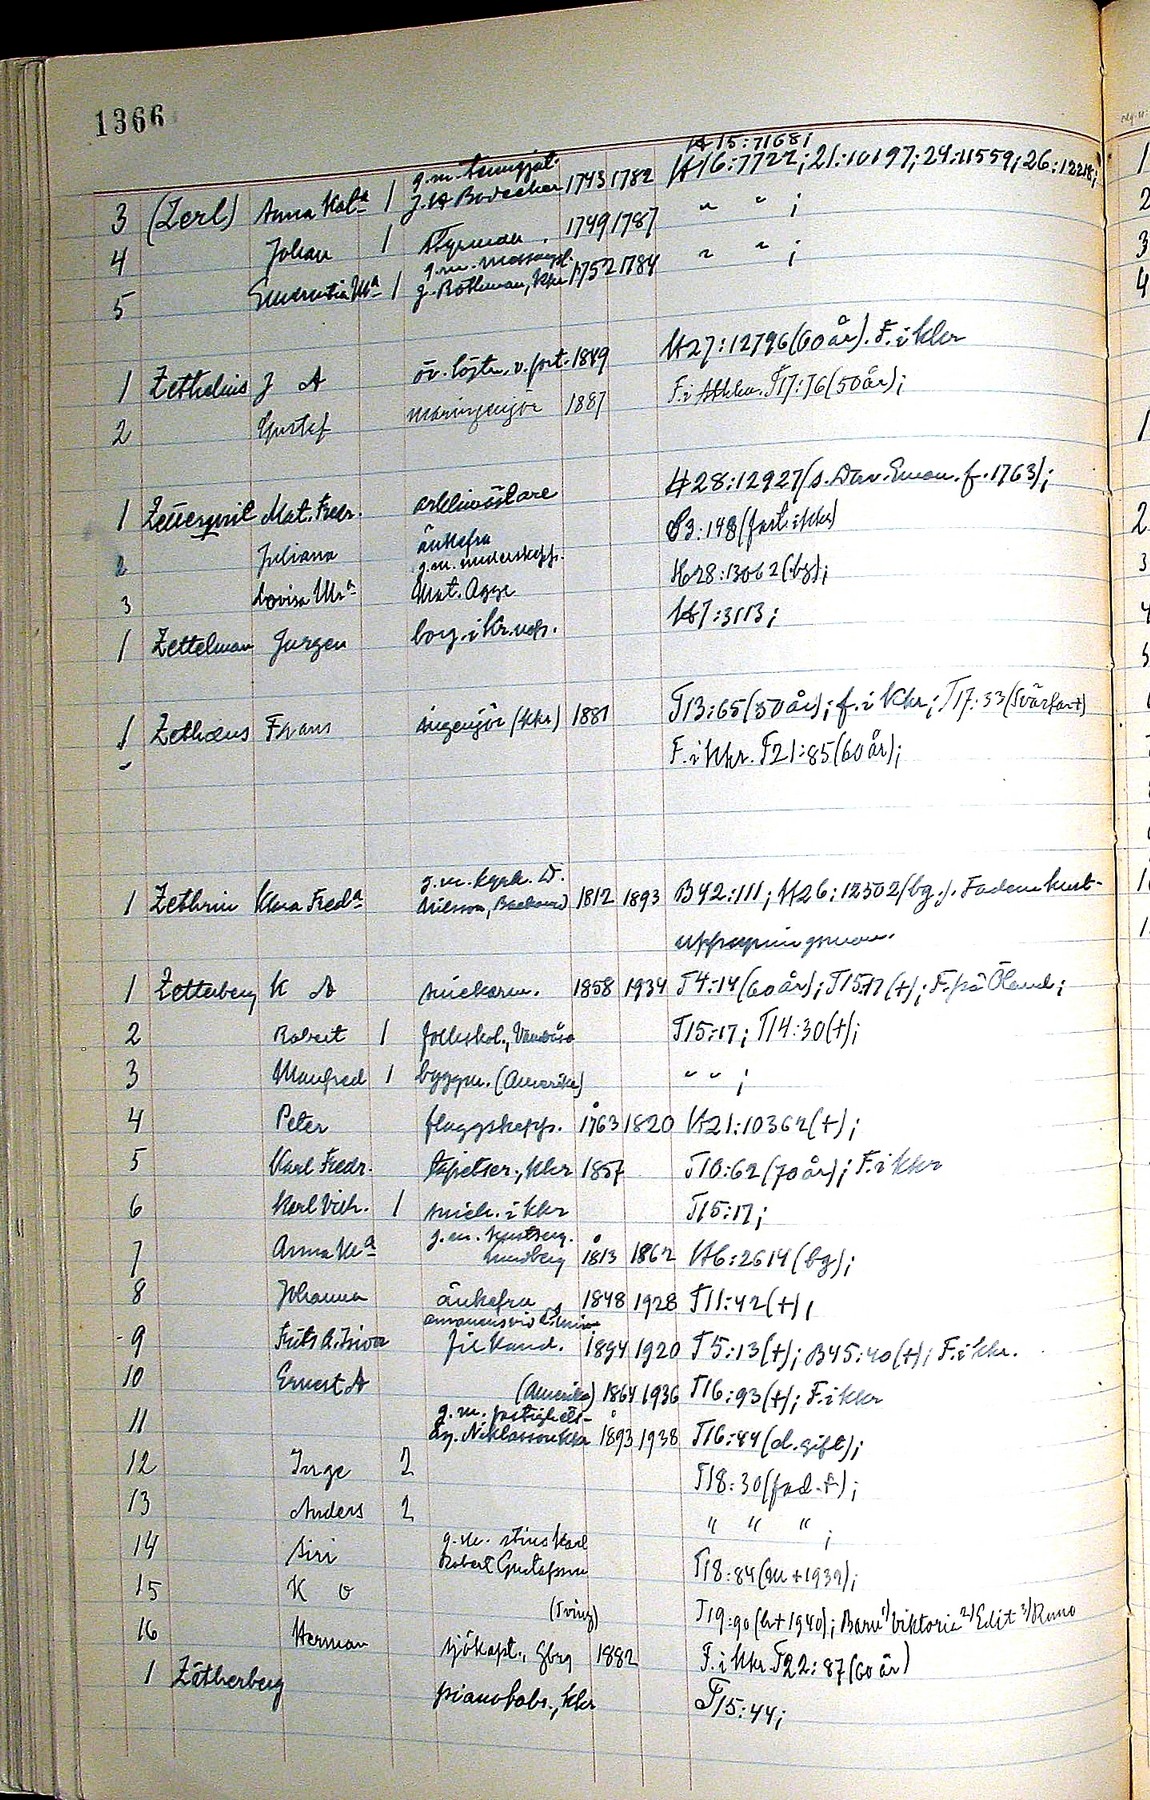 1366
H15:71681
3 (Zerl) Anna Kat:a 1 g.m. tenngjut. J.H Bodecker 1743 1782 H16:7722; 21:10197; 24:11559; 26:12218;
4 Johan 1 Styrman 1749 1787 " " ;
5 M:a 1 g.m. J. Rothman, Kkr 1752 1784 " " ;
1 Zethelius J A öv. löjtn. v. fort. 1849 H27:12796 (60 år). F. i kkr
2 Gustef maringenjör 1887 F. i Sthlm. T17:76 (50 år);
1 Zetterqvist Mat. Fredr. arklimästare H28:12927 (s. Dav. Eman. f. 1763);
2 Juliana änkefru S3:148 (fast. i kkr)
3 Lovisa M:a g.m. underskepp. Mat. Agge H28:13062 (bg);
1 Zettelman Jurgen borg. i H7:3113;
1 Zethæus Frans ingenjör (kkr) 1881 T13:65 (50 år); f. i Kkr; T17:33
F. i kkr. T21:85 (60 år);
1 Zethrin Klara Fred:a g.m. kyrk. D. Nilsson, 1812 1893 B42:111; H26:12502 (bg). Fadern kust-
uppsyningsman.
1 Zetterberg K A snickarm. 1858 1934 T4:14 (60 år); T15:17 (+); F. på Öland;
2 Robert 1 folkskol., T15:17; T14:30 (+);
3 Manfred 1 byggm. (Amerika) " " ;
4 Peter flaggskepp. 1763 1820 H21:10362 (+);
5 Karl Fredr. tapetser., kkr 1857 T10:62 (70 år); F. i kkr
6 Karl Vilh. 1 snick. i kkr T15:17;
7 Anna K:a g.m. Lundberg 1813 1862 H6:2614 (bg);
8 Johanna änkefru 1848 1928 T11:42 (+);
9 Frits A. fil kand. 1894 1920 T5:13 (+); B45:40 (+); F. i kkr.
10 Ernest A (Amerika) 1864 1936 T16:93 (+); F. i kkr
11 g.m. fastighets- äg. Niklasson kkr 1893 1938 T16:44 (d. gift);
12 Inge 2 T18:30 (fad. +);
13 Anders 2 " " " ;
14 Siri g.m. stins Karl Robert Gustafsson T18:84 (m +1939);
15 K O T19:90 (h +1940); Barn 1) Viktoria 2) Edit 3) Runo
16 Herman sjökapt., Gbrg 1882 F. i kkr. T22:87 (60 år)
1 Zätherberg pianofabr., kkr T15:44;